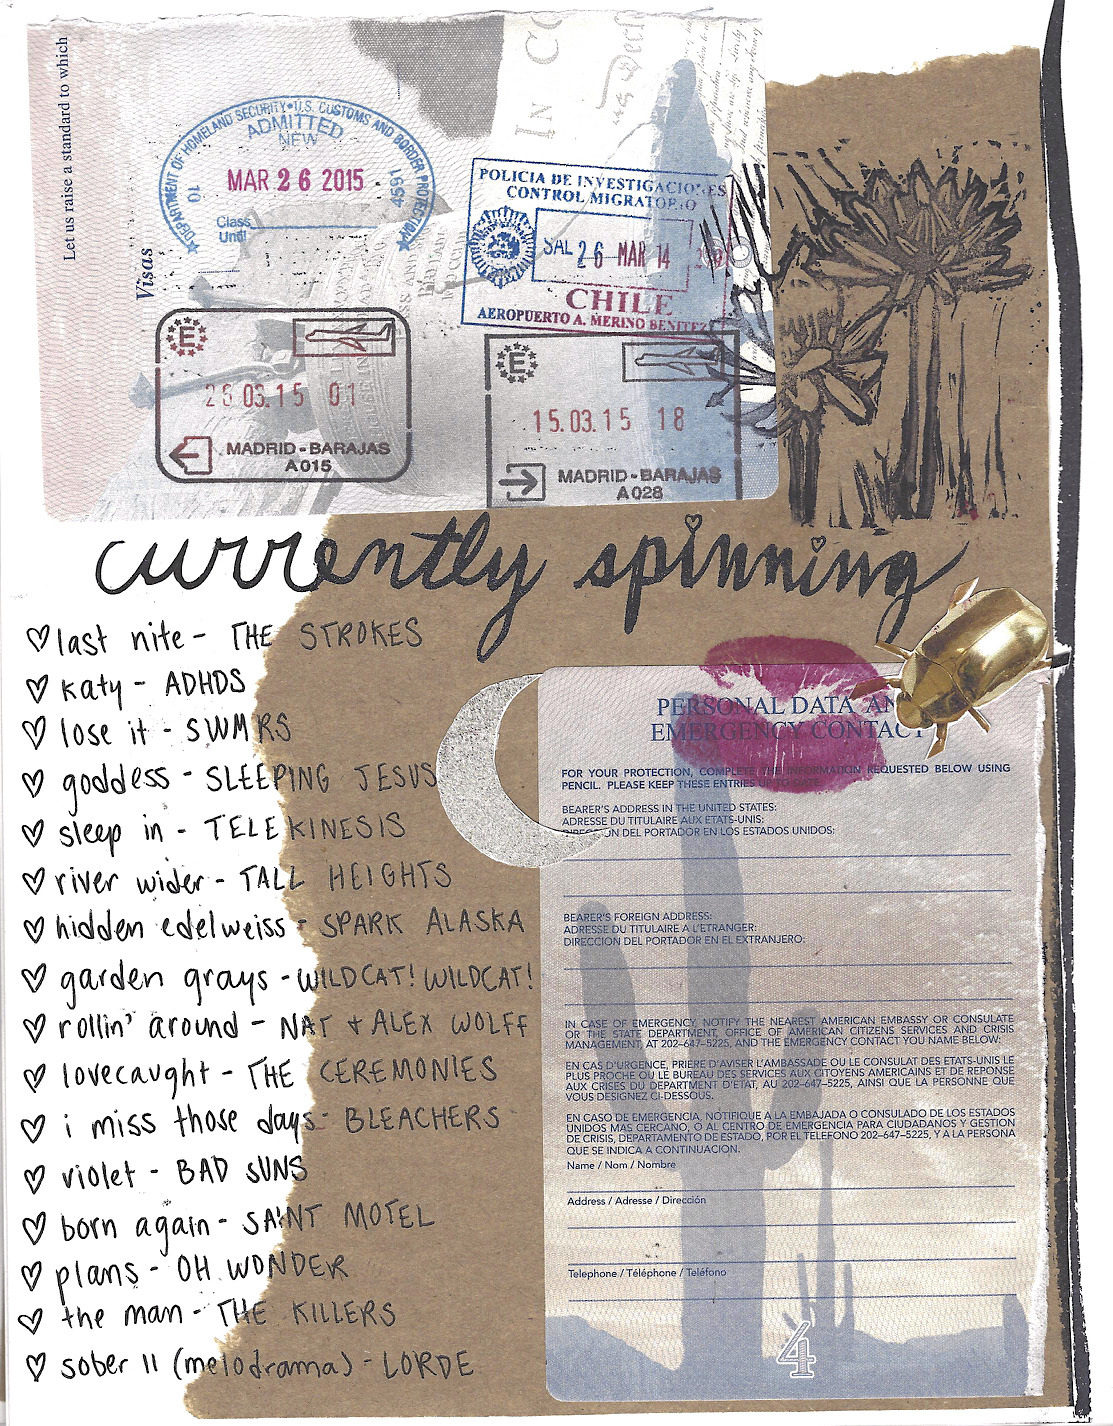 Let us raise a standard to which
IN CO
DEPARTMENT OF HOMELAND SECURITY • U.S. CUSTOMS AND BORDER PROTECTION
ADMITTED
NEW
MAR 26 2015
10
4591
Class
Until
Visas
POLICIA DE INVESTIGACIONES
CONTROL MIGRATORIO
SAL 26 MAR 14
CHILE
AEROPUERTO A. MERINO BENITEZ
E
26.03.15 01
MADRID-BARAJAS
A015
E
15.03.15 18
MADRID-BARAJAS
A028
currently spinning
♡ last nite - THE STROKES
♡ katy - ADHDS
♡ lose it - SWMRS
♡ goddess - SLEEPING JESUS
♡ sleep in - TELEKINESIS
♡ river wider - TALL HEIGHTS
♡ hidden edelweiss - SPARK ALASKA
♡ garden grays - WILDCAT! WILDCAT!
♡ rollin' around - NAT + ALEX WOLFF
♡ lovecaught - THE CEREMONIES
♡ i miss those days - BLEACHERS
♡ violet - BAD SUNS
♡ born again - SAINT MOTEL
♡ plans - OH WONDER
♡ the man - THE KILLERS
♡ sober II (melodrama) - LORDE
PERSONAL DATA AN
EMERGENCY CONTACT
FOR YOUR PROTECTION, COMPLETE THE INFORMATION REQUESTED BELOW USING
PENCIL. PLEASE KEEP THESE ENTRIES
BEARER'S ADDRESS IN THE UNITED STATES:
ADRESSE DU TITULAIRE AUX ETATS-UNIS:
DIRECCION DEL PORTADOR EN LOS ESTADOS UNIDOS:
BEARER'S FOREIGN ADDRESS:
ADRESSE DU TITULAIRE A L'ETRANGER:
DIRECCION DEL PORTADOR EN EL EXTRANJERO:
IN CASE OF EMERGENCY, NOTIFY THE NEAREST AMERICAN EMBASSY OR CONSULATE
OR THE STATE DEPARTMENT, OFFICE OF AMERICAN CITIZENS SERVICES AND CRISIS
MANAGEMENT, AT 202-647-5225, AND THE EMERGENCY CONTACT YOU NAME BELOW:
EN CAS D'URGENCE, PRIERE D'AVISER L'AMBASSADE OU LE CONSULAT DES ETATS-UNIS LE
PLUS PROCHE OU LE BUREAU DES SERVICES AUX CITOYENS AMERICAINS ET DE REPONSE
AUX CRISES DU DEPARTMENT D'ETAT, AU 202-647-5225, AINSI QUE LA PERSONNE QUE
VOUS DESIGNEZ CI-DESSOUS.
EN CASO DE EMERGENCIA, NOTIFIQUE A LA EMBAJADA O CONSULADO DE LOS ESTADOS
UNIDOS MAS CERCANO, O AL CENTRO DE EMERGENCIA PARA CIUDADANOS Y GESTION
DE CRISIS, DEPARTAMENTO DE ESTADO, POR EL TELEFONO 202-647-5225, Y A LA PERSONA
QUE SE INDICA A CONTINUACION.
Name / Nom / Nombre
Address / Adresse / Dirección
Telephone / Téléphone / Teléfono
4